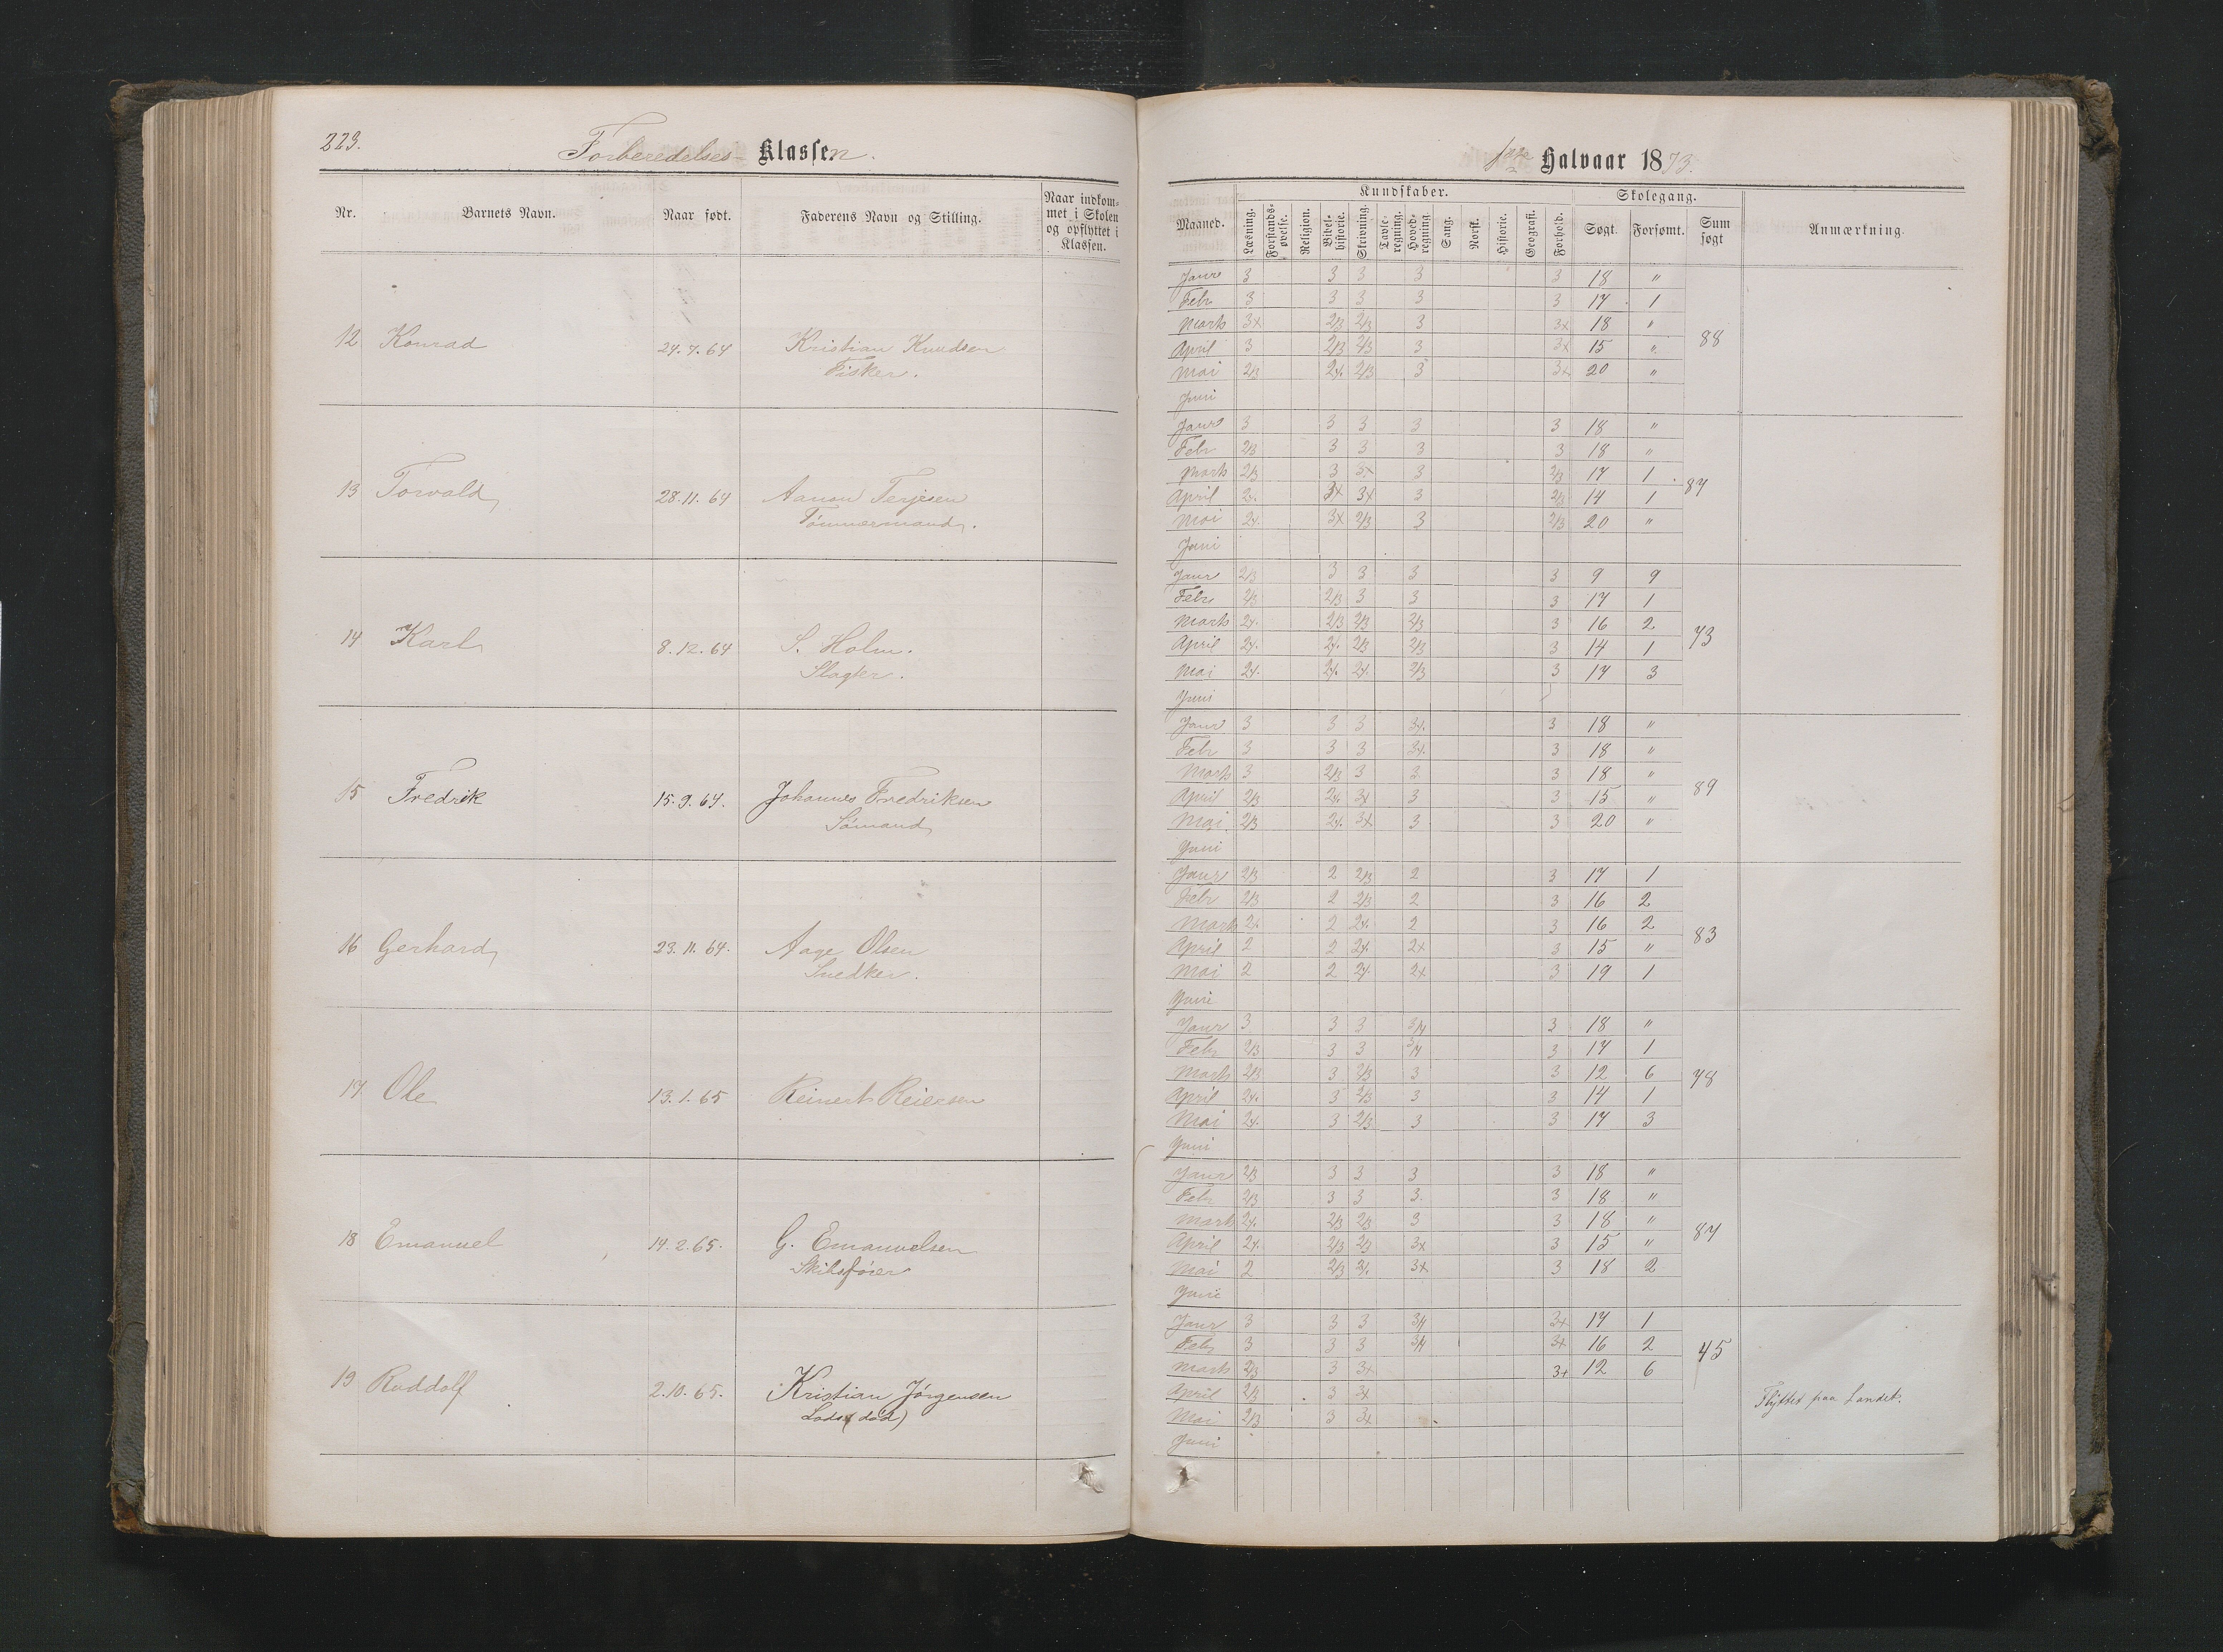 223.
Forberedelses- Klassen.
Nr. Barnets Navn. Naar født. Faderens Navn og Stilling. Naar indkommet i Skolen og opflyttet i Klassen.
12 Konrad 24.7.64 Kristian Knudsen
Fisker.
13 Torvald 28.11.64 Aanon Terjesen
Tömmermand.
14 Karl 8.12.64 S. Holm.
Slagter.
15 Fredrik 15.9.64. Johannes Fredriksen
Sömand
16 Gerhard 23.11.64. Aage Olsen
Snedker.
17 Ole 13.1.65 Reinert Reiersen
18 Emanuel 14.2.65. G. Emanuelsen
19 Ruddolf 2.10.65. Kristian Jörgensen
Lods (död)
1ste Halvaar 1873.
Maaned. Kundskaber. Skolegang. Sum søgt Anmærkning.
Læsning. Forstandsøvelse. Religion. Bibelhistorie. Skrivning. Tavleregning. Hovedregning. Sang. Norsk. Historie. Geografi. Forhold. Søgt. Forsømt.
Janr 3 3 3 3 3 18 "
Febr 3 3 3 3 3 17 1
Marts 3x 2/3 2/3 3 3x 18 "
April 3 2/3 2/3 3 3x 15 "
Mai 2/3 2x. 2/3 3 3x 20 "
Juni
88
Janr 3 3 3 3 3 18 "
Febr 2/3 3 3 3 3 18 "
Marts 2/3 3 3x 3 2/3 17 1
April 2x. 3x 3x 3 2/3 14 1
Mai 2x. 3x 2/3 3 2/3 20 "
Juni
87
Janr 2/3 3 3 3 3 9 9
Febr 2/3 2/3 3 3 3 17 1
Marts 2x. 2/3 2/3 2/3 3 16 2
April 2x. 2x. 2/3 2/3 3 14 1
Mai 2x. 2x. 2x. 2/3 3 17 3
Juni
73
Janr 3 3 3 3x. 3 18 "
Febr 3 3 3 3x. 3 18 "
Marts 3 2/3 3 3 3 18 "
April 2/3 2x. 3x 3 3 15 "
Mai 2/3 2x. 3x 3 3 20 "
Juni
89
Janr 2/3 2 2/3 2 3 17 1
Febr 2/3 2 2/3 2 3 16 2
Marts 2x 2 2x. 2 3 16 2
April 2 2 2x. 2x 3 15 "
Mai 2 2 2x. 2x 3 19 1
Juni
83
Janr 3 3 3 3/4 3 18 "
Febr 2/3 3 3 3/4 3 17 1
Marts 2/3 3 2/3 3 3 12 6
April 2x. 3 2/3 3 3 14 1
Mai 2x. 3 2/3 3 3 17 3
Juni
78
Janr 2/3 3 3 3 3 18 "
Febr 2/3 3 3 3 3 18 "
Marts 2x. 2/3 2/3 3 3 18 "
April 2x. 2/3 2/3 3x 3 15 "
Mai 2 2/3 2x. 3x 3 18 2
Juni
87
Janr 3 3 3 3/4 3x 17 1
Febr 3 3 3 3/4 3x 16 2
Marts 2/3 3 3x 3x 12 6
April 2/3 3 3x
Mai 2/3 3 3x
Juni
45
Flyttet paa Landet.